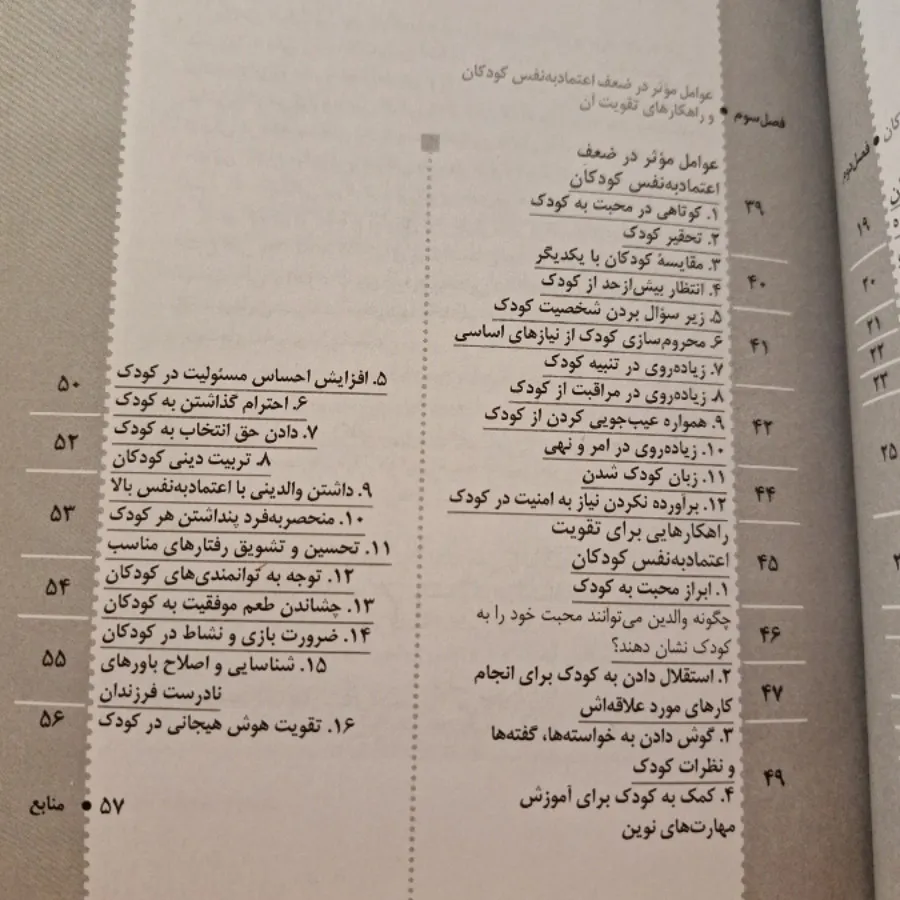 عوامل مؤثر در ضعف اعتمادبه‌نفس کودکان
فصل سوم • و راهکارهای تقویت آن
عوامل مؤثر در ضعف
اعتمادبه‌نفس کودکان
۳۹
۱. کوتاهی در محبت به کودک
۲. تحقیر کودک
۳. مقایسهٔ کودکان با یکدیگر
۴۰
۴. انتظار بیش‌ازحد از کودک
۵. زیر سؤال بردن شخصیت کودک
۶. محروم‌سازی کودک از نیازهای اساسی
۴۱
۷. زیاده‌روی در تنبیه کودک
۸. زیاده‌روی در مراقبت از کودک
۹. همواره عیب‌جویی کردن از کودک
۴۲
۱۰. زیاده‌روی در امر و نهی
۱۱. زبان کودک شدن
۴۴
۱۲. برآورده نکردن نیاز به امنیت در کودک
راهکارهایی برای تقویت
اعتمادبه‌نفس کودکان
۴۵
۱. ابراز محبت به کودک
چگونه والدین می‌توانند محبت خود را به
۴۶
کودک نشان دهند؟
۲. استقلال دادن به کودک برای انجام
۴۷
کارهای مورد علاقه‌اش
۳. گوش دادن به خواسته‌ها، گفته‌ها
و نظرات کودک
۴۹
۴. کمک به کودک برای آموزش
مهارت‌های نوین
۵. افزایش احساس مسئولیت در کودک
۵۰
۶. احترام گذاشتن به کودک
۷. دادن حق انتخاب به کودک
۵۲
۸. تربیت دینی کودکان
۹. داشتن والدینی با اعتمادبه‌نفس بالا
۱۰. منحصربه‌فرد پنداشتن هر کودک
۵۳
۱۱. تحسین و تشویق رفتارهای مناسب
۱۲. توجه به توانمندی‌های کودکان
۵۴
۱۳. چشاندن طعم موفقیت به کودک
۱۴. ضرورت بازی و نشاط در کودکان
۱۵. شناسایی و اصلاح باورهای
۵۵
نادرست فرزندان
۱۶. تقویت هوش هیجانی در کودک
۵۶
۵۷ • منابع
فصل دوم •
۱۹
۲۰
۲۱
۲۲
۲۳
۲۵